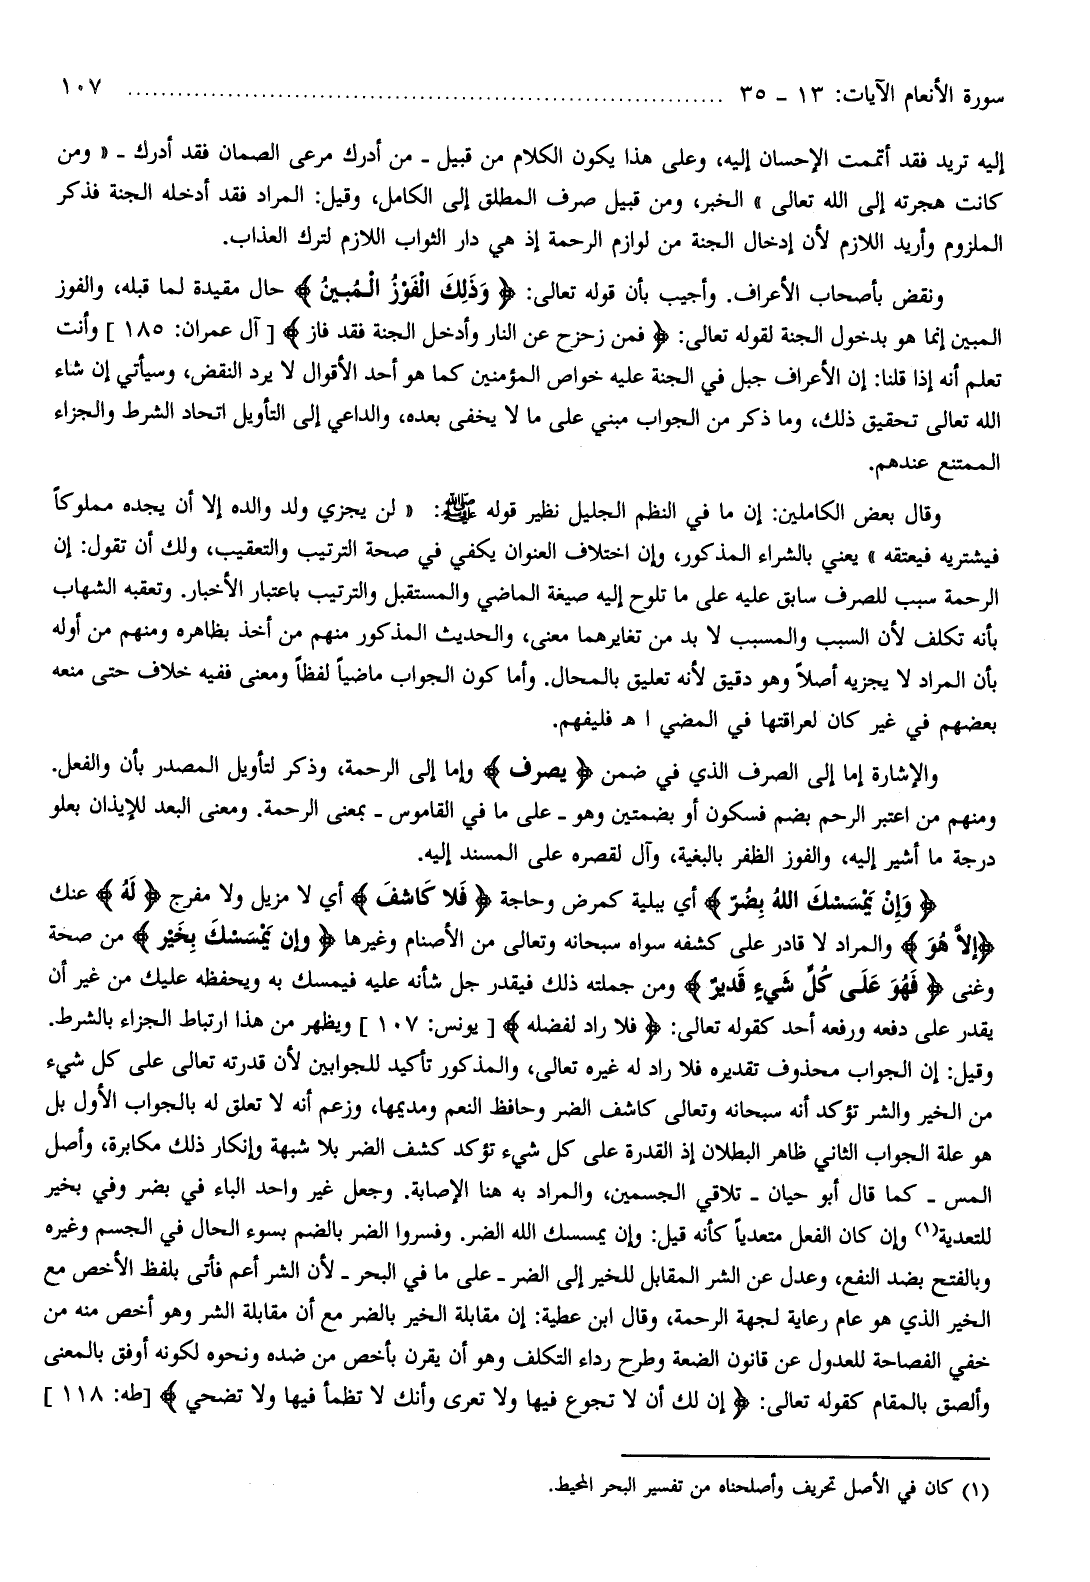 سورة الأنعام الآيات: ١٣ ـ ٣٥ .......................................................................... ١٠٧
إليه تريد فقد أتممت الإحسان إليه، وعلى هذا يكون الكلام من قبيل ـ من أدرك مرعى الصمان فقد أدرك ـ « ومن
كانت هجرته إلى الله تعالى » الخبر، ومن قبيل صرف المطلق إلى الكامل، وقيل: المراد فقد أدخله الجنة فذكر
الملزوم وأريد اللازم لأن إدخال الجنة من لوازم الرحمة إذ هي دار الثواب اللازم لترك العذاب.
ونقض بأصحاب الأعراف. وأجيب بأن قوله تعالى: ﴿ وَذَلِكَ الْفَوْزُ الْمُبينُ ﴾ حال مقيدة لما قبله، والفوز
المبين إنما هو بدخول الجنة لقوله تعالى: ﴿ فمن زحزح عن النار وأدخل الجنة فقد فاز ﴾ [ آل عمران: ١٨٥ ] وأنت
تعلم أنه إذا قلنا: إن الأعراف جبل في الجنة عليه خواص المؤمنين كما هو أحد الأقوال لا يرد النقض، وسيأتي إن شاء
الله تعالى تحقيق ذلك، وما ذكر من الجواب مبني على ما لا يخفى بعده، والداعي إلى التأويل اتحاد الشرط والجزاء
الممتنع عندهم.
وقال بعض الكاملين: إن ما في النظم الجليل نظير قوله ﷺ: « لن يجزي ولد والده إلا أن يجده مملوكاً
فيشتريه فيعتقه » يعني بالشراء المذكور، وإن اختلاف العنوان يكفي في صحة الترتيب والتعقيب، ولك أن تقول: إن
الرحمة سبب للصرف سابق عليه على ما تلوح إليه صيغة الماضي والمستقبل والترتيب باعتبار الأخبار. وتعقبه الشهاب
بأنه تكلف لأن السبب والمسبب لا بد من تغايرهما معنى، والحديث المذكور منهم من أخذ بظاهره ومنهم من أوله
بأن المراد لا يجزيه أصلاً وهو دقيق لأنه تعليق بالمحال. وأما كون الجواب ماضياً لفظاً ومعنى ففيه خلاف حتى منعه
بعضهم في غير كان لعراقتها في المضي ا هـ فليفهم.
والإشارة إما إلى الصرف الذي في ضمن ﴿ يصرف ﴾ وإما إلى الرحمة، وذكر لتأويل المصدر بأن والفعل.
ومنهم من اعتبر الرحم بضم فسكون أو بضمتين وهو ـ على ما في القاموس ـ بمعنى الرحمة. ومعنى البعد للإيذان بعلو
درجة ما أشير إليه، والفوز الظفر بالبغية، وآل لقصره على المسند إليه.
﴿ وَإنْ يَمْسَسْكَ اللهُ بِضُرّ ﴾ أي ببلية كمرض وحاجة ﴿ فَلا كَاشفَ ﴾ أي لا مزيل ولا مفرج ﴿ لَهُ ﴾ عنك
﴿إلاَّ هُوَ ﴾ والمراد لا قادر على كشفه سواه سبحانه وتعالى من الأصنام وغيرها ﴿ وإن يَمْسَسْكَ بِخَيْر ﴾ من صحة
وغنى ﴿ فَهُوَ عَلَى كُلِّ شَيءٍ قَديرٌ ﴾ ومن جملته ذلك فيقدر جل شأنه عليه فيمسك به ويحفظه عليك من غير أن
يقدر على دفعه ورفعه أحد كقوله تعالى: ﴿ فلا راد لفضله ﴾ [ يونس: ١٠٧ ] ويظهر من هذا ارتباط الجزاء بالشرط.
وقيل: إن الجواب محذوف تقديره فلا راد له غيره تعالى، والمذكور تأكيد للجوابين لأن قدرته تعالى على كل شيء
من الخير والشر تؤكد أنه سبحانه وتعالى كاشف الضر وحافظ النعم ومديمها، وزعم أنه لا تعلق له بالجواب الأول بل
هو علة الجواب الثاني ظاهر البطلان إذ القدرة على كل شيء تؤكد كشف الضر بلا شبهة وإنكار ذلك مكابرة، وأصل
المس ـ كما قال أبو حيان ـ تلاقي الجسمين، والمراد به هنا الإصابة. وجعل غير واحد الباء في بضر وفي بخير
للتعدية(١) وإن كان الفعل متعدياً كأنه قيل: وإن يمسسك الله الضر. وفسروا الضر بالضم بسوء الحال في الجسم وغيره
وبالفتح بضد النفع، وعدل عن الشر المقابل للخير إلى الضر ـ على ما في البحر ـ لأن الشر أعم فأتى بلفظ الأخص مع
الخير الذي هو عام رعاية لجهة الرحمة، وقال ابن عطية: إن مقابلة الخير بالضر مع أن مقابلة الشر وهو أخص منه من
خفي الفصاحة للعدول عن قانون الضعة وطرح رداء التكلف وهو أن يقرن بأخص من ضده ونحوه لكونه أوفق بالمعنى
وألصق بالمقام كقوله تعالى: ﴿ إن لك أن لا تجوع فيها ولا تعرى وأنك لا تظمأ فيها ولا تضحي ﴾ [طه: ١١٨ ]
(١) كان في الأصل تحريف وأصلحناه من تفسير البحر المحيط.